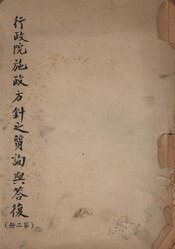 行政院施政方針之質詢與答復
（第二冊）